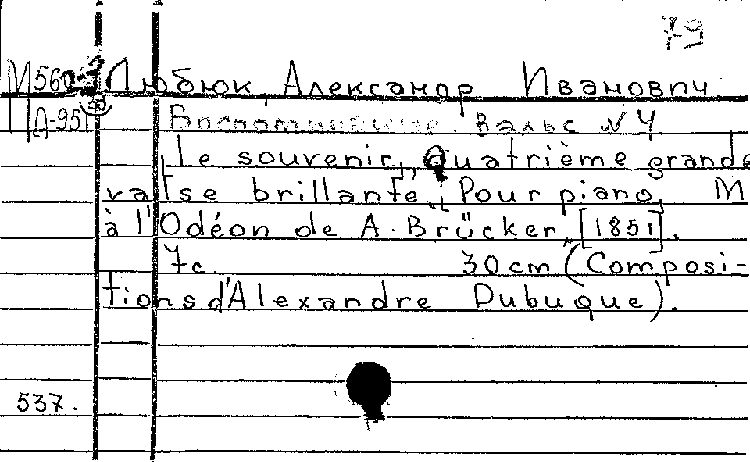 79
М560-3 Дюбюк, Александр Иванович
Д-951 Воспоминание. Вальс N 4
Le souvenir. Quatrième grande
valse brillante. Pour piano. M
à l'Odéon de A. Brücker, [1851].
7c. 30cm (Composi-
tions d'Alexandre Dubuque).
537.